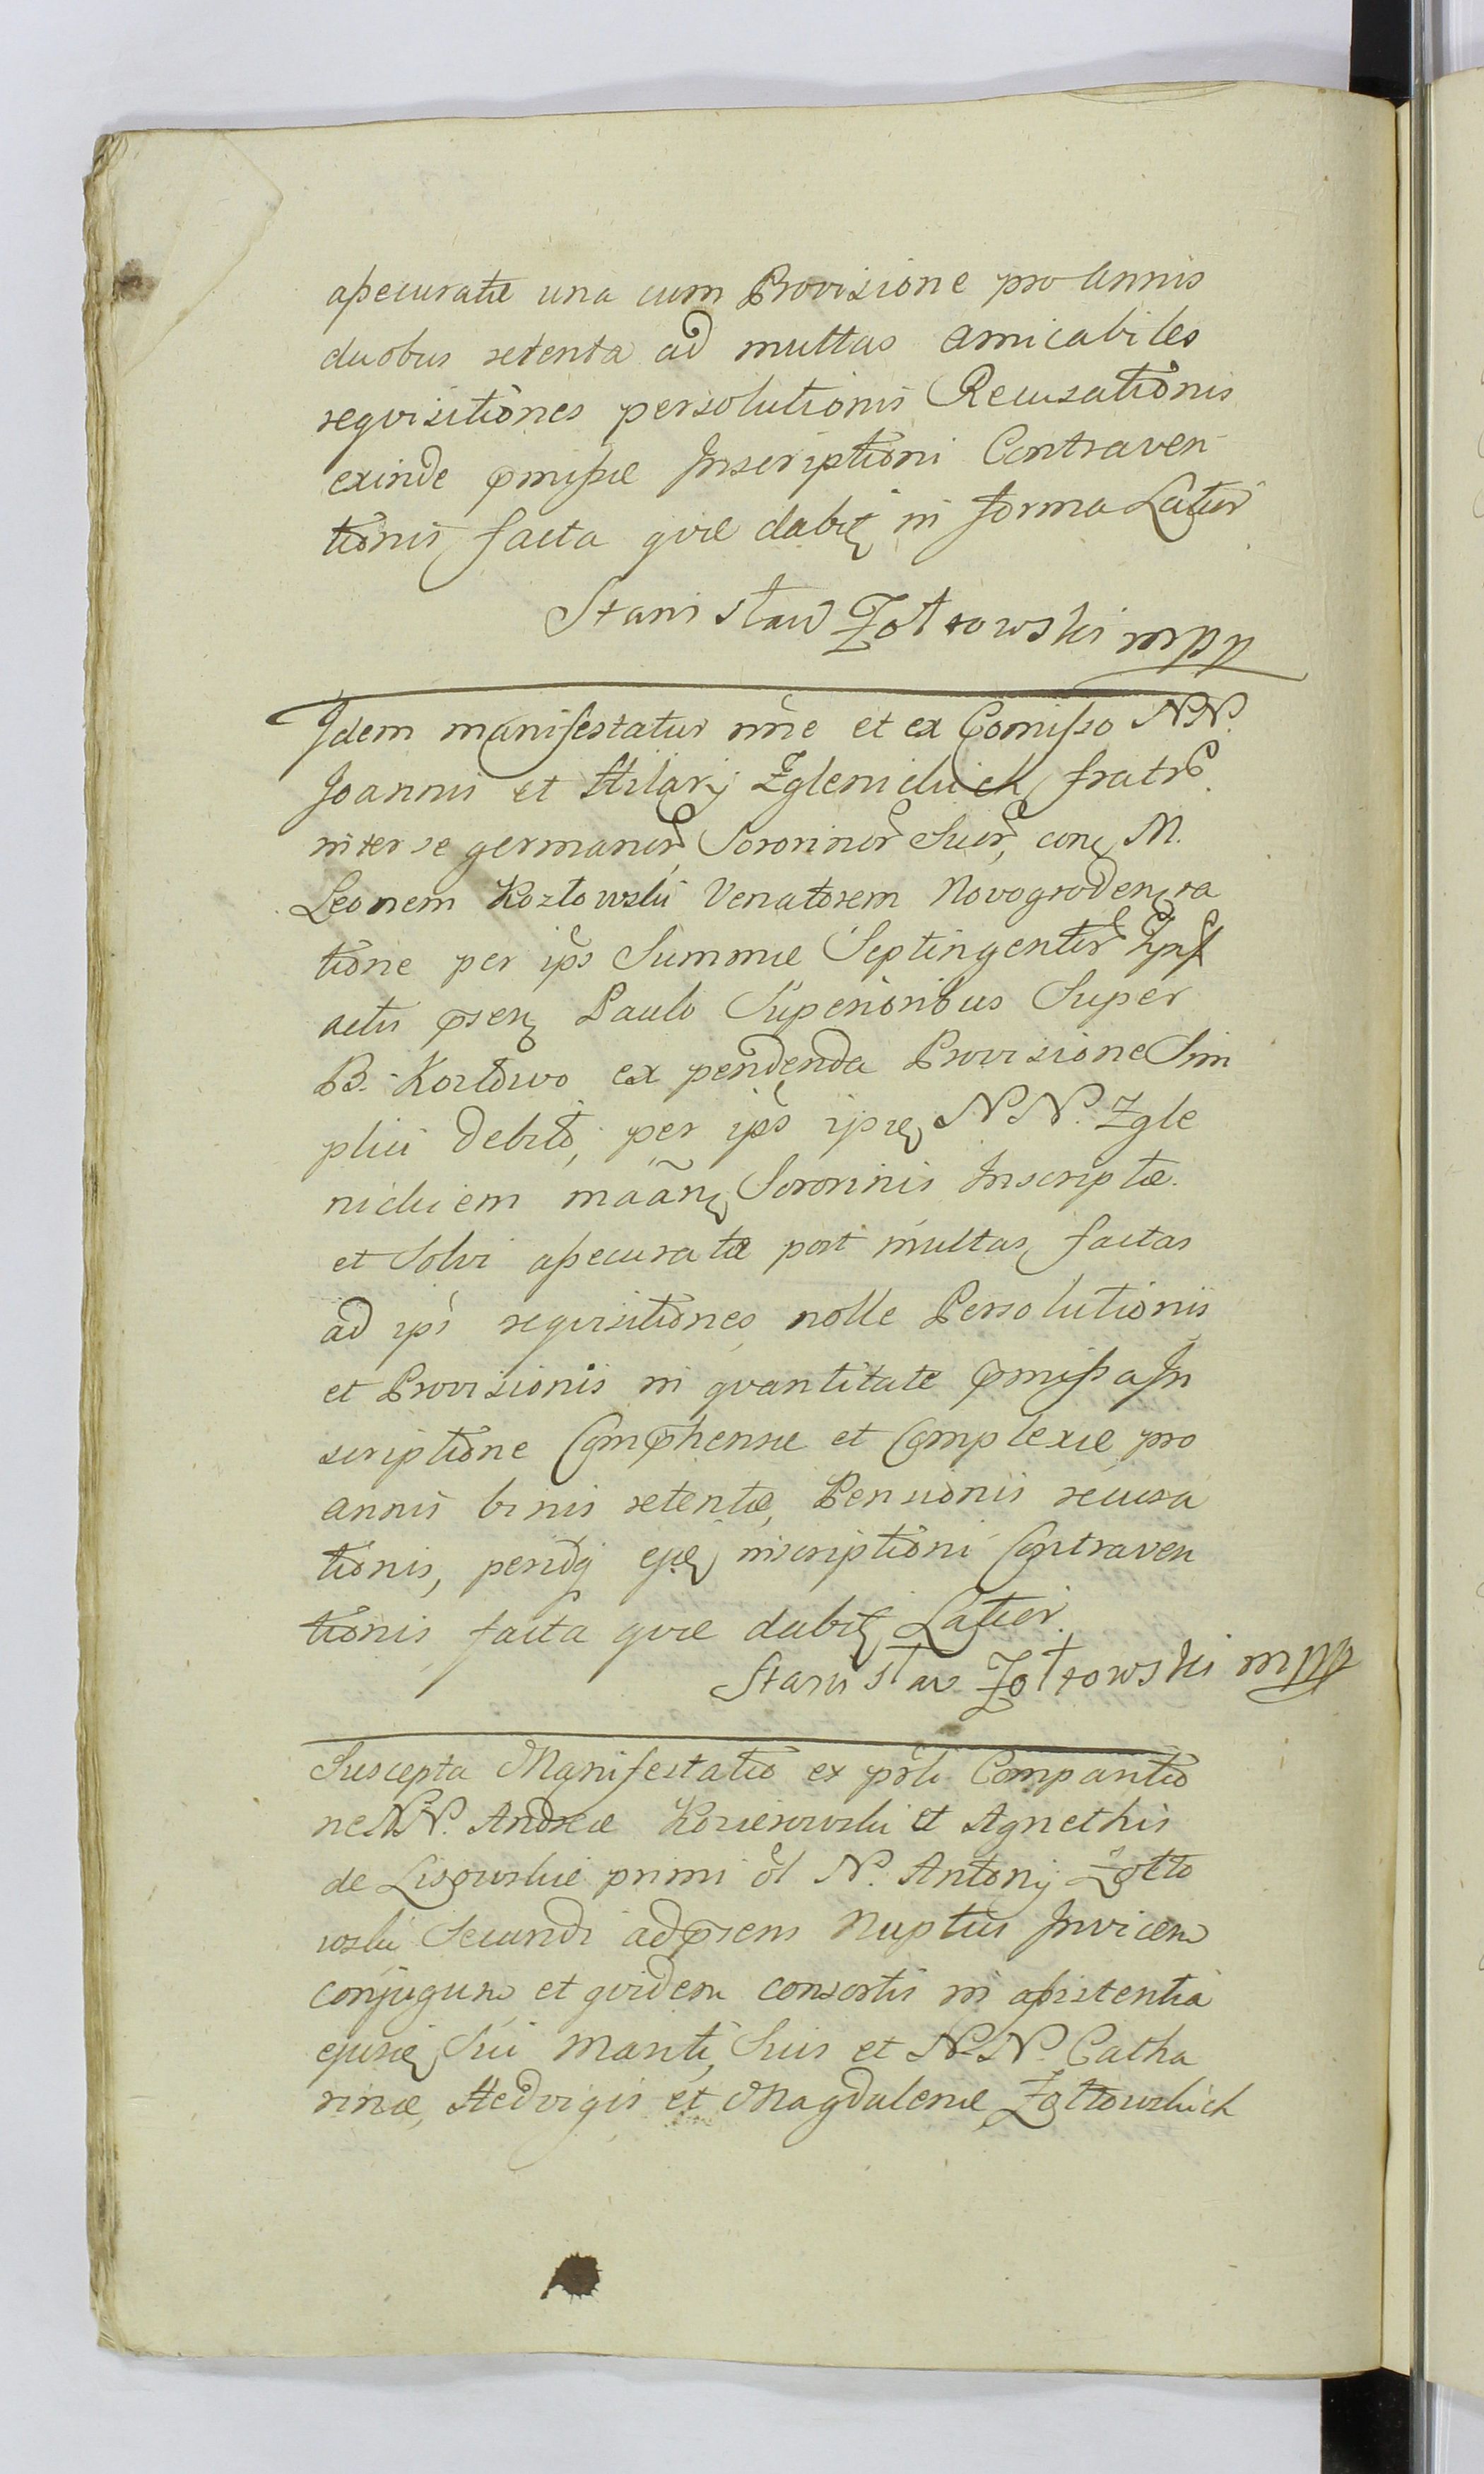 assecuratæ una cum Provisione pro Annis
duobus retenta ad multas amicabiles
reqvisitiones persolutionis Recusationis
exinde pmissæ Inscriptioni Contraven
tionis facta qvæ dabit in forma Latior
Stanisław Żołtowski mpp
Idem manifestatur nne et ex Comisso NN.
Joannis et Hilarij Zglenickich fratr
inter se germanor, Sororinor Suor, con M.
Leonem Kozłowski Venatorem Novogroden ra
tione per ips Summæ Septingentor
actis psen Paulo Superioribus Super
B. Kozłowo ex pendenda Provisione Sim
plici debito, per ips ipse NN. Zgle
nickiem Sororinis Inscriptæ
et Solvi assecuratæ post multas factas
ad ips reqvisitiones nolle Persolutionis
et Provisionis in qvantitate pmissa In
scriptione Comphensæ et Complexæ pro
annis binis retentæ, Pensionis recusa
tionis, inscriptioni Contraven
tionis facta qvæ dabit Latior.
Stanisław Żołtowski mpp
Suscepta Manifestatio ex prli Comparitio
ne NN. Andreæ et Agnethis
de Lisowskie primi ol N. Antonij Żołto
wski Secundi ad psens Nuptus Invicem
conjugum et qvidem consortis in assistentia
ejuse Sui Mariti, Suis et NN. Catha
rinæ, Hedvigis et Magdalenæ Żołtowskich